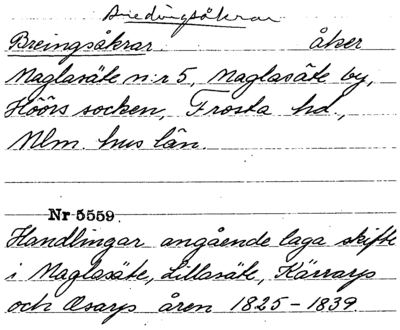 Bredingsåkrar
Breingsåkrar åker
Maglasäte n:r 5, Maglasäte by,
Höörs socken, Frosta hd.,
Mlm. hus län.
Nr 5559.
Handlingar angående laga skifte
i Maglasäte, Lillasäte, Kärrarp
och Osarp åren 1825-1839.